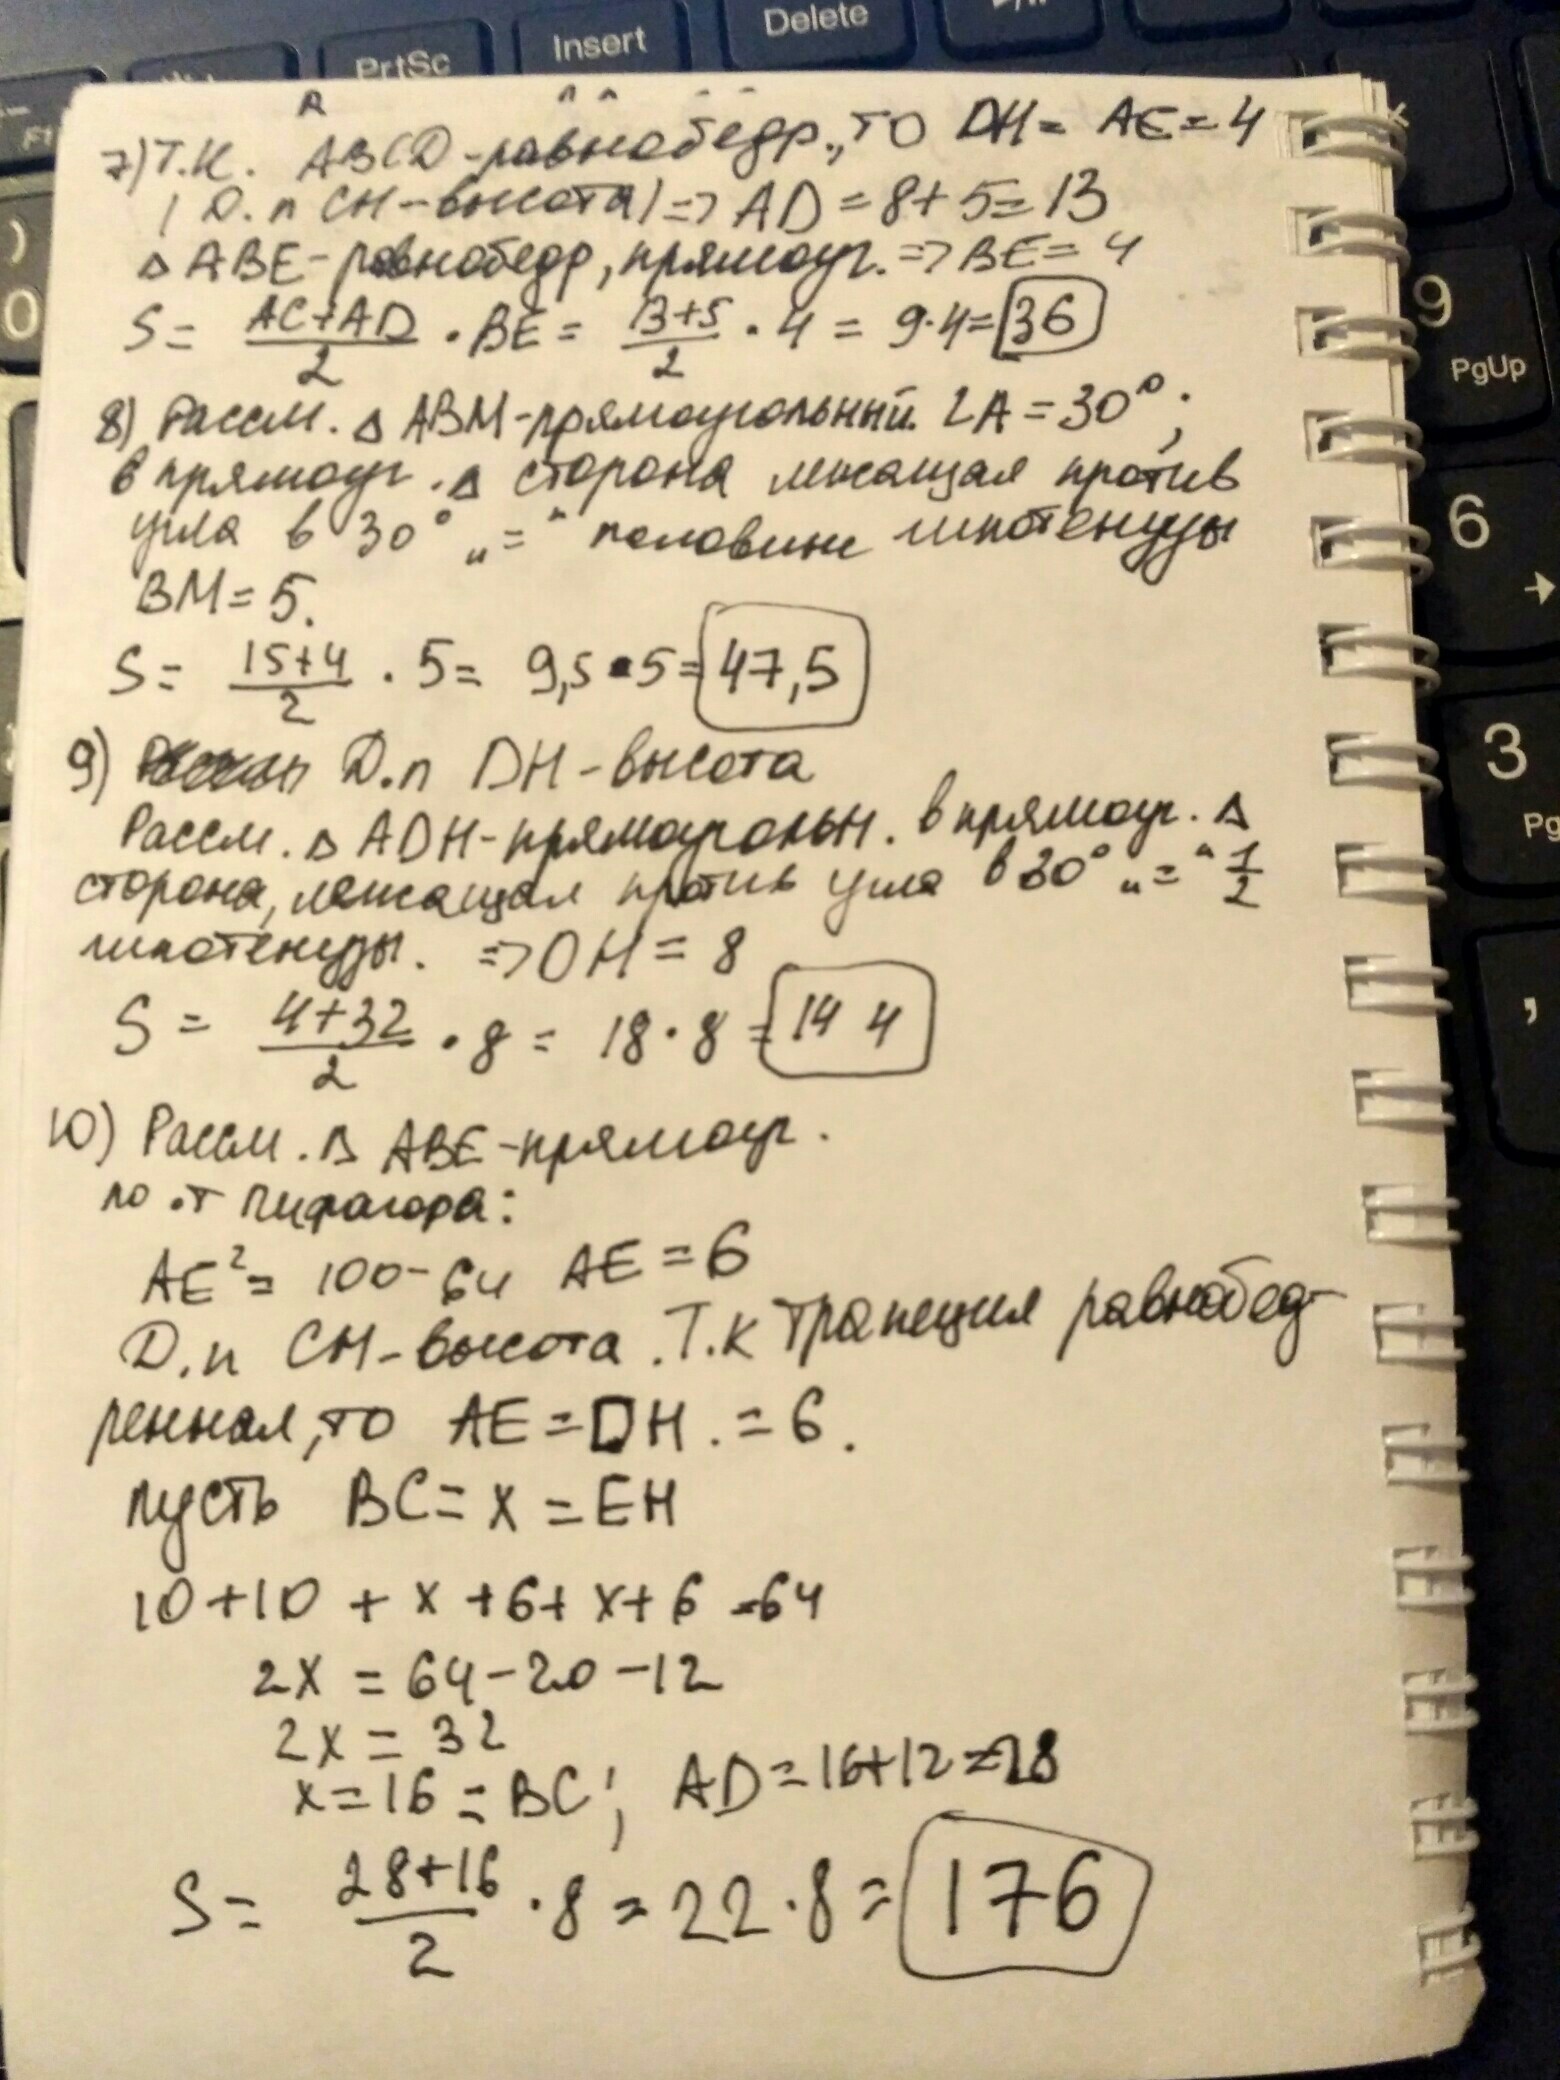 PrtSc
Insert
Delete
7) Т.к. ABCD - равнобедр., то DH = AE = 4
( Д.п CH - высота) => AD = 8 + 5 = 13
△ ABE - равнобедр, прямоуг. => BE = 4
S = AC+AD/2 · BE = 13+5/2 · 4 = 9·4 = 36
8) Рассм. △ ABM - прямоугольный. ∠A = 30°;
в прямоуг. △ сторона лежащая против
угла в 30° „=“ половине гипотенузы
BM = 5.
S = 15+4/2 · 5 = 9,5 · 5 = 47,5
9) Д.п DH - высота
Рассм. △ ADH - прямоугольн. в прямоуг. △
сторона, лежащая против угла в 30° „=“ 1/2
гипотенузы. => DH = 8
S = 4+32/2 · 8 = 18 · 8 = 144
10) Рассм. △ ABE - прямоуг.
по .т Пифагора:
AE² = 100 - 64 AE = 6
Д.п CH - высота. Т.к трапеция равнобед-
ренная, то AE = DH . = 6.
пусть BC = x = EH
10 + 10 + x + 6 + x + 6 = 64
2x = 64 - 20 - 12
2x = 32
x = 16 = BC; AD = 16 + 12 = 28
S = 28+16/2 · 8 = 22 · 8 = 176
9
PgUp
6
→
3
Pg
,
0
)